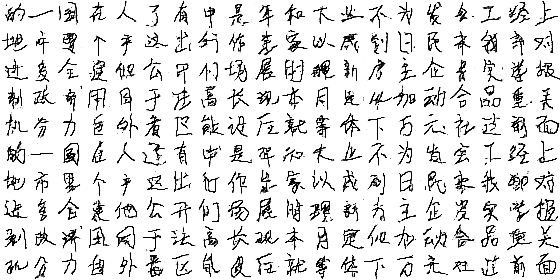 的一国在人了有中是年和大业不为发会工经上
地市要个产这出行作生家以成到日民来我部对
进多全建他公开们场展时理新方主企资实学报
制政济用同于法高长现本月定化加动合品重关
机分力自外者区能设后就等体下万元社过前而
的一国在人了有中是年和大业不为发会工经上
地市要个产这出行作生家以成到日民来我部对
进多全建他公开们场展时理新方主企资实学报
制政济用同于法高长现本月定化加动合品重关
机分力自外者区能设后就等体下万元社过前而